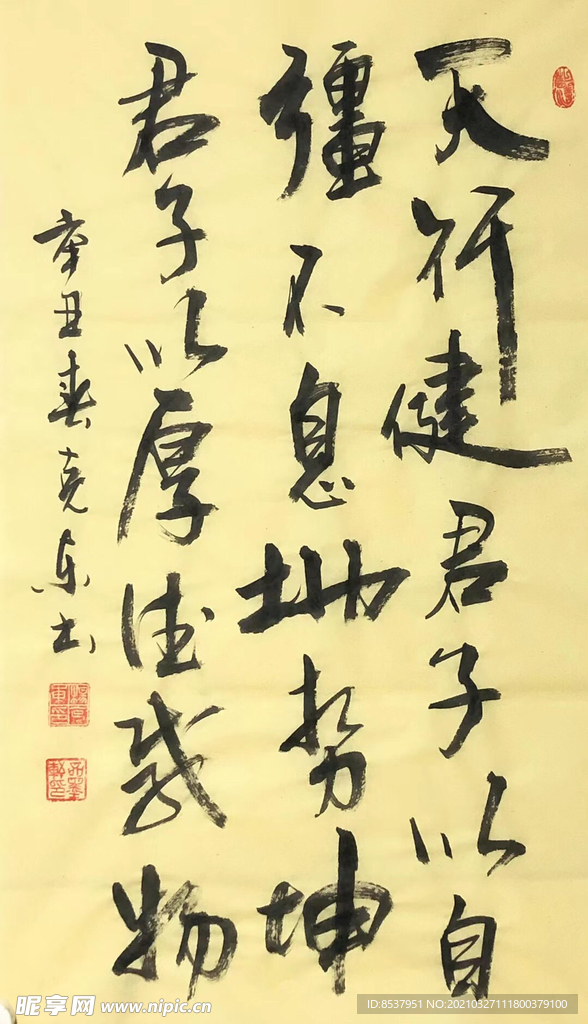 天行健君子以自
彊不息地势坤
君子以厚德载物
辛丑春克东书
昵享网 www.nipic.cn
ID:8537951 NO:20210327111800379100